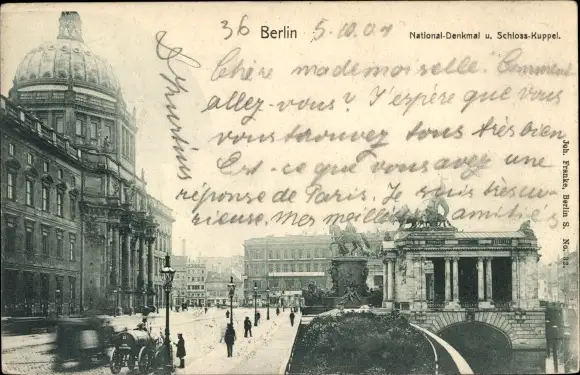 36 Berlin 5.10.04
National-Denkmal u. Schloss-Kuppel.
Chère mademoiselle. Comment
allez-vous? J'espère que vous
vous trouvez tous très bien
Est-ce que vous avez une
réponse de Paris. Je suis très cu-
rieuse. Mes meilleures amitiés
Joh. Franke, Berlin S. No. 32.